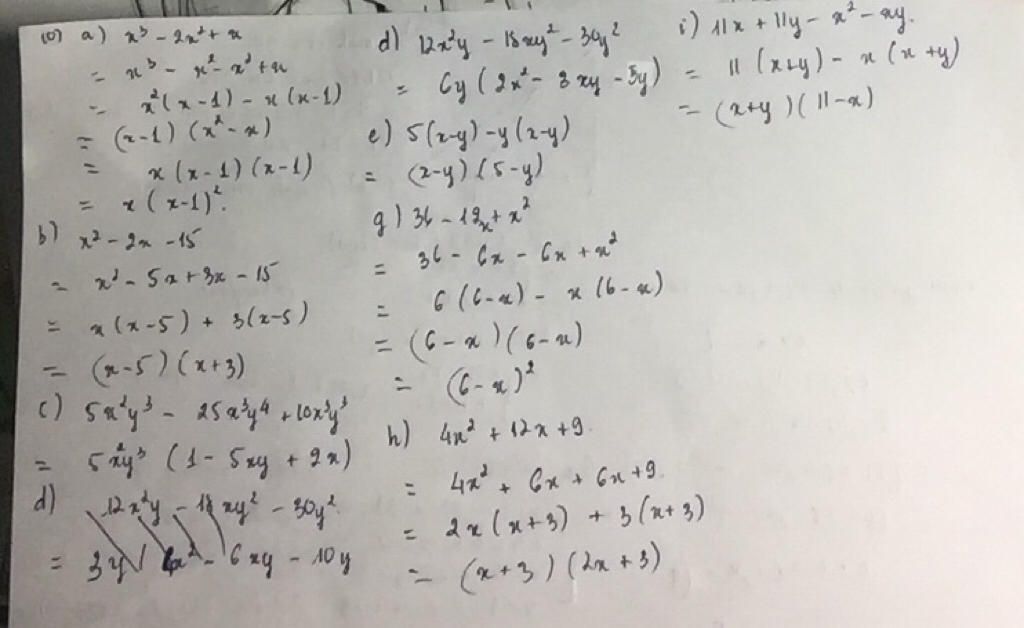 10) a) x³ - 2x² + x
= x³ - x² - x² + x
= x²(x-1) - x(x-1)
= (x-1)(x² - x)
= x(x-1)(x-1)
= x(x-1)².
b) x² - 2x - 15
= x² - 5x + 3x - 15
= x(x-5) + 3(x-5)
= (x-5)(x+3)
c) 5x²y³ - 25x³y⁴ + 10x³y³
= 5x²y³ (1 - 5xy + 2x)
d) 12x²y - 18xy² - 30y²
= 3y( 4x² - 6xy - 10y
d) 12x²y - 18xy² - 30y²
= 6y(2x² - 3xy - 5y)
e) 5(x-y) - y(x-y)
= (x-y)(5-y)
g) 36 - 12x + x²
= 36 - 6x - 6x + x²
= 6(6-x) - x(6-x)
= (6-x)(6-x)
= (6-x)²
h) 4x² + 12x + 9.
= 4x² + 6x + 6x + 9.
= 2x(x+3) + 3(x+3)
= (x+3)(2x+3)
i) 11x + 11y - x² - xy.
= 11(x+y) - x(x+y)
= (x+y)(11-x)